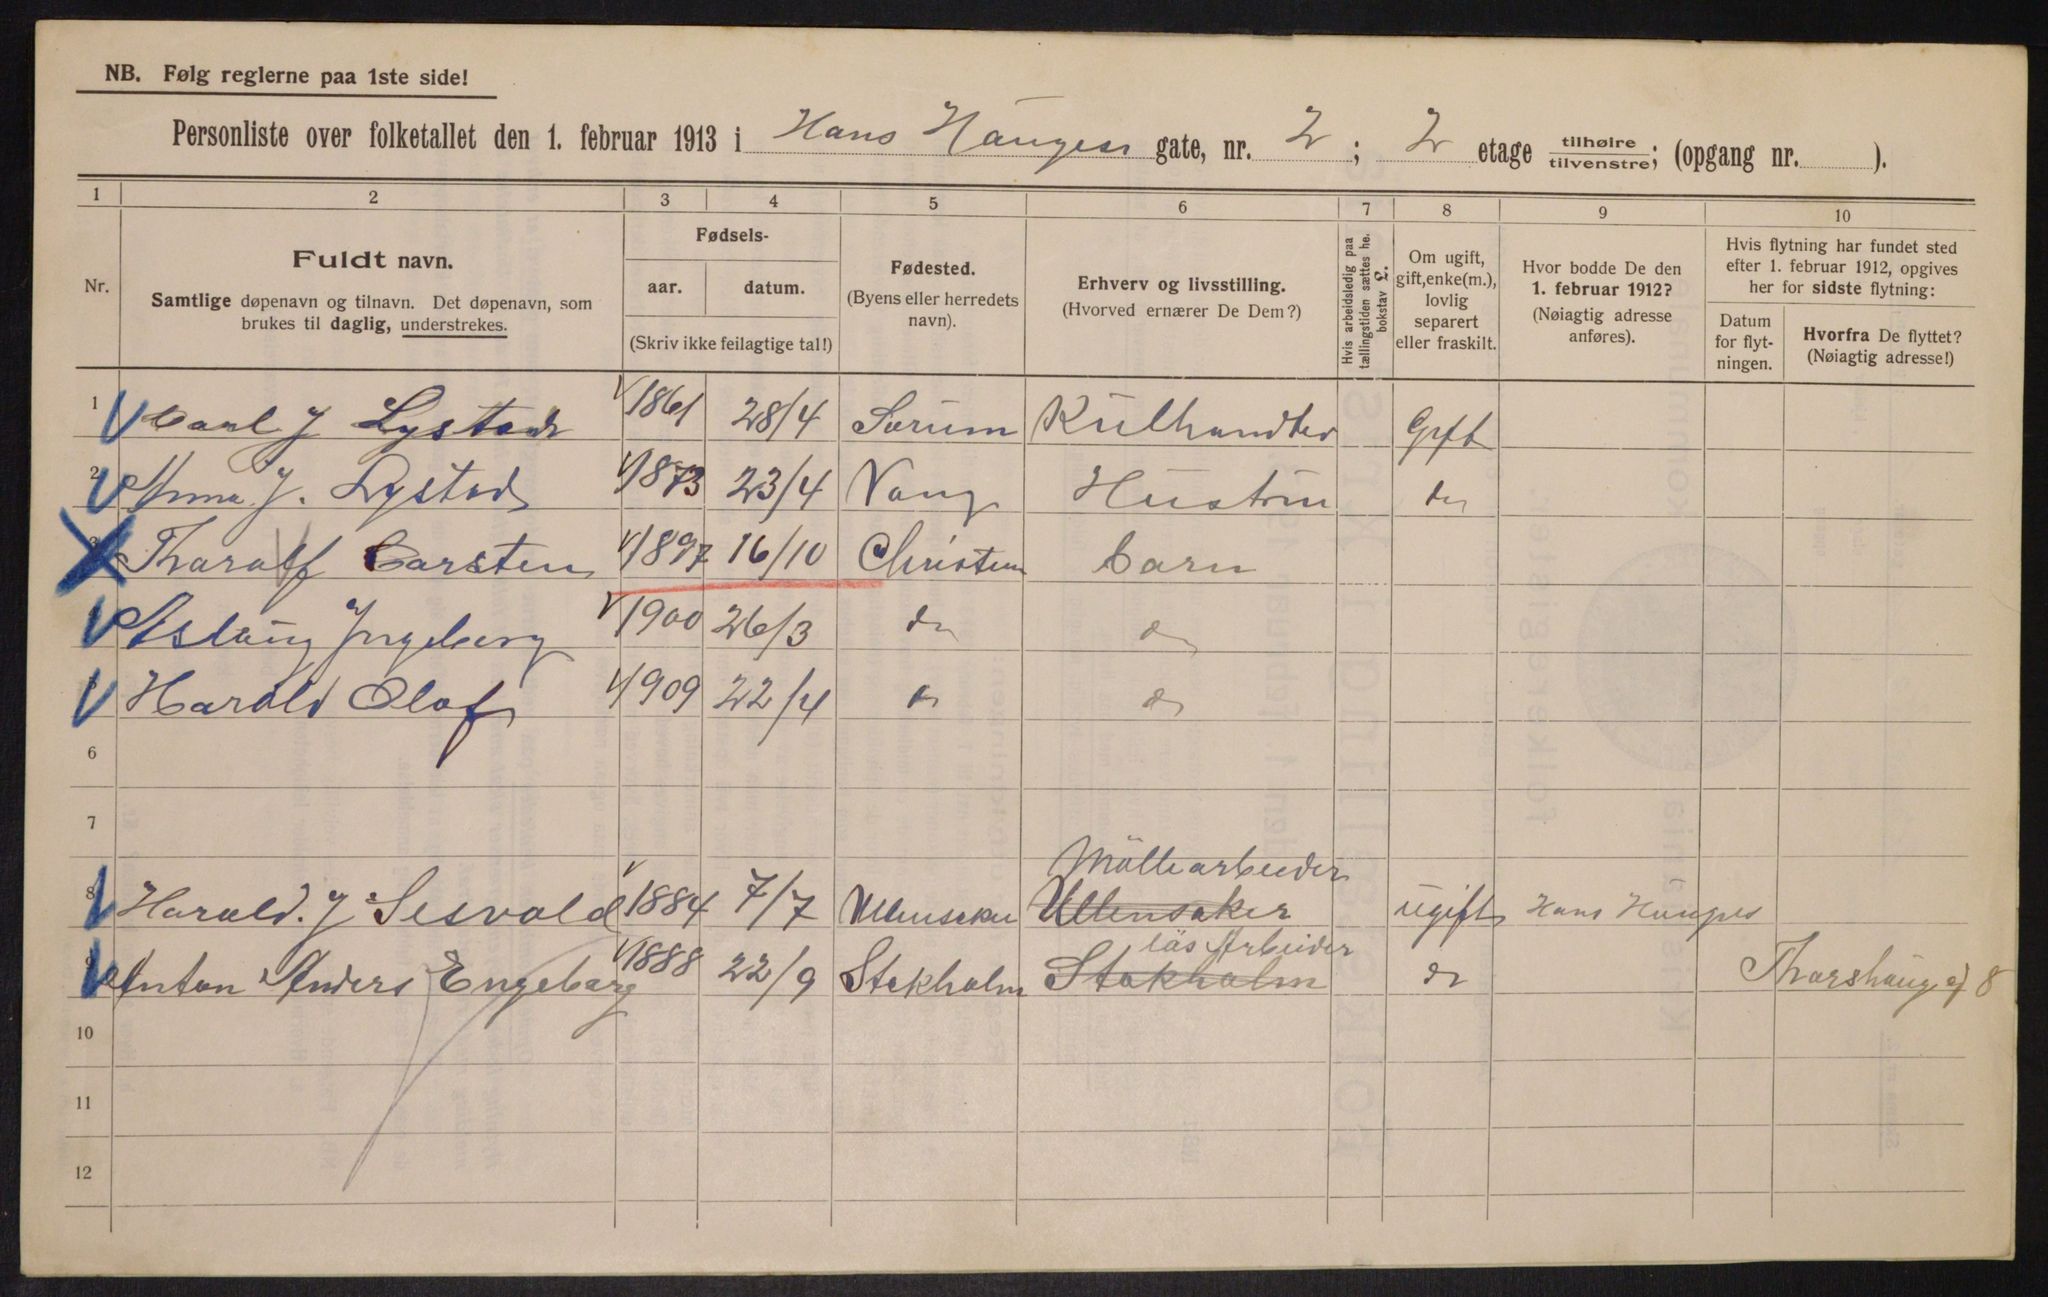 NB. Følg reglerne paa 1ste side!
Personliste over folketallet den 1. februar 1913 i Hans Haugess gate, nr. 2; 2 etage tilhøire/tilvenstre; (opgang nr. ).
1 2 3 4 5 6 7 8 9 10
Nr.
Fuldt navn.
Samtlige døpenavn og tilnavn. Det døpenavn, som
brukes til daglig, understrekes.
Fødsels-
aar. datum.
(Skriv ikke feilagtige tal!)
Fødested.
(Byens eller herredets
navn).
Erhverv og livsstilling.
(Hvorved ernærer De Dem?)
Hvis arbeidsledig paa
tællingstiden sættes he.
bokstav L.
Om ugift,
gift, enke(m.),
lovlig
separert
eller fraskilt.
Hvor bodde De den
1. februar 1912?
(Nøiagtig adresse
anføres).
Hvis flytning har fundet sted
efter 1. februar 1912, opgives
her for sidste flytning:
Datum
for flyt-
ningen.
Hvorfra De flyttet?
(Nøiagtig adresse!)
1 Carl J Lystad 1861 28/4 Sørum Kulhandler Gift
2 Anna J. Lystad 1873 23/4 Vang Hustru do
3 Tharalf Carsten 1897 16/10 Christian barn
Aslaug Ingeborg 1900 26/3 do do
5 Harald Olaf 1909 22/4 do do
6
7
Möllearbeider
8 Harald. J Sesvold 1884 7/7 Ullensaker Ullensaker ugift Hans Hauges
läs Arbeider
9 Anton Anders Engeborg 1888 22/9 Stokholm Stokholm do Tharshaug g 8
10
11
12